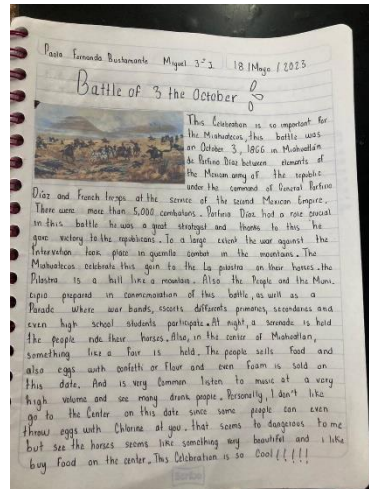 Paola Fernanda Bustamante Miguel 3° J 18/Mayo/2023
Battle of 3 the October
This Celebration is so important for
the Miahuatecos, this battle was
on October 3, 1866 in Miahuatlán
de Porfirio Díaz between elements of
the Mexican army of the republic
under the command of General Porfirio
Díaz and French troops at the service of the second Mexican Empire.
There were more than 5,000 combatans. Porfirio Díaz had a role crucial
in this battle he was a great strategist and thanks to this he
gave victory to the republicans. To a large extent the war against the
Intervention took place in guerrilla combat in the mountains. The
Miahuatecos celebrate this goin to the La pilastra on their horses. the
Pilastra is a hill like a mountain. Also the People and the Muni
cipio prepared in conmemoration of this battle, as well as a
Parade where war bands, escorts different primaries, secondaries and
even high school students participate. At night, a serenade is held
the people ride their horses. Also, in the center of Miahuatlan,
something like a Fair is held. The people sells Food and
also eggs with confetti or Flour and even Foam is sold on
this date. And is very Common listen to music at a very
high volume and see many drunk people. Personally, I don't like
go to the Center on this date since some people can even
throw eggs with Chlorine at you, that seems to dangerous to me
but see the horses seems like something very beautiful and i like
buy Food on the center. This Celebration is so Cool!!!!!
Scribe